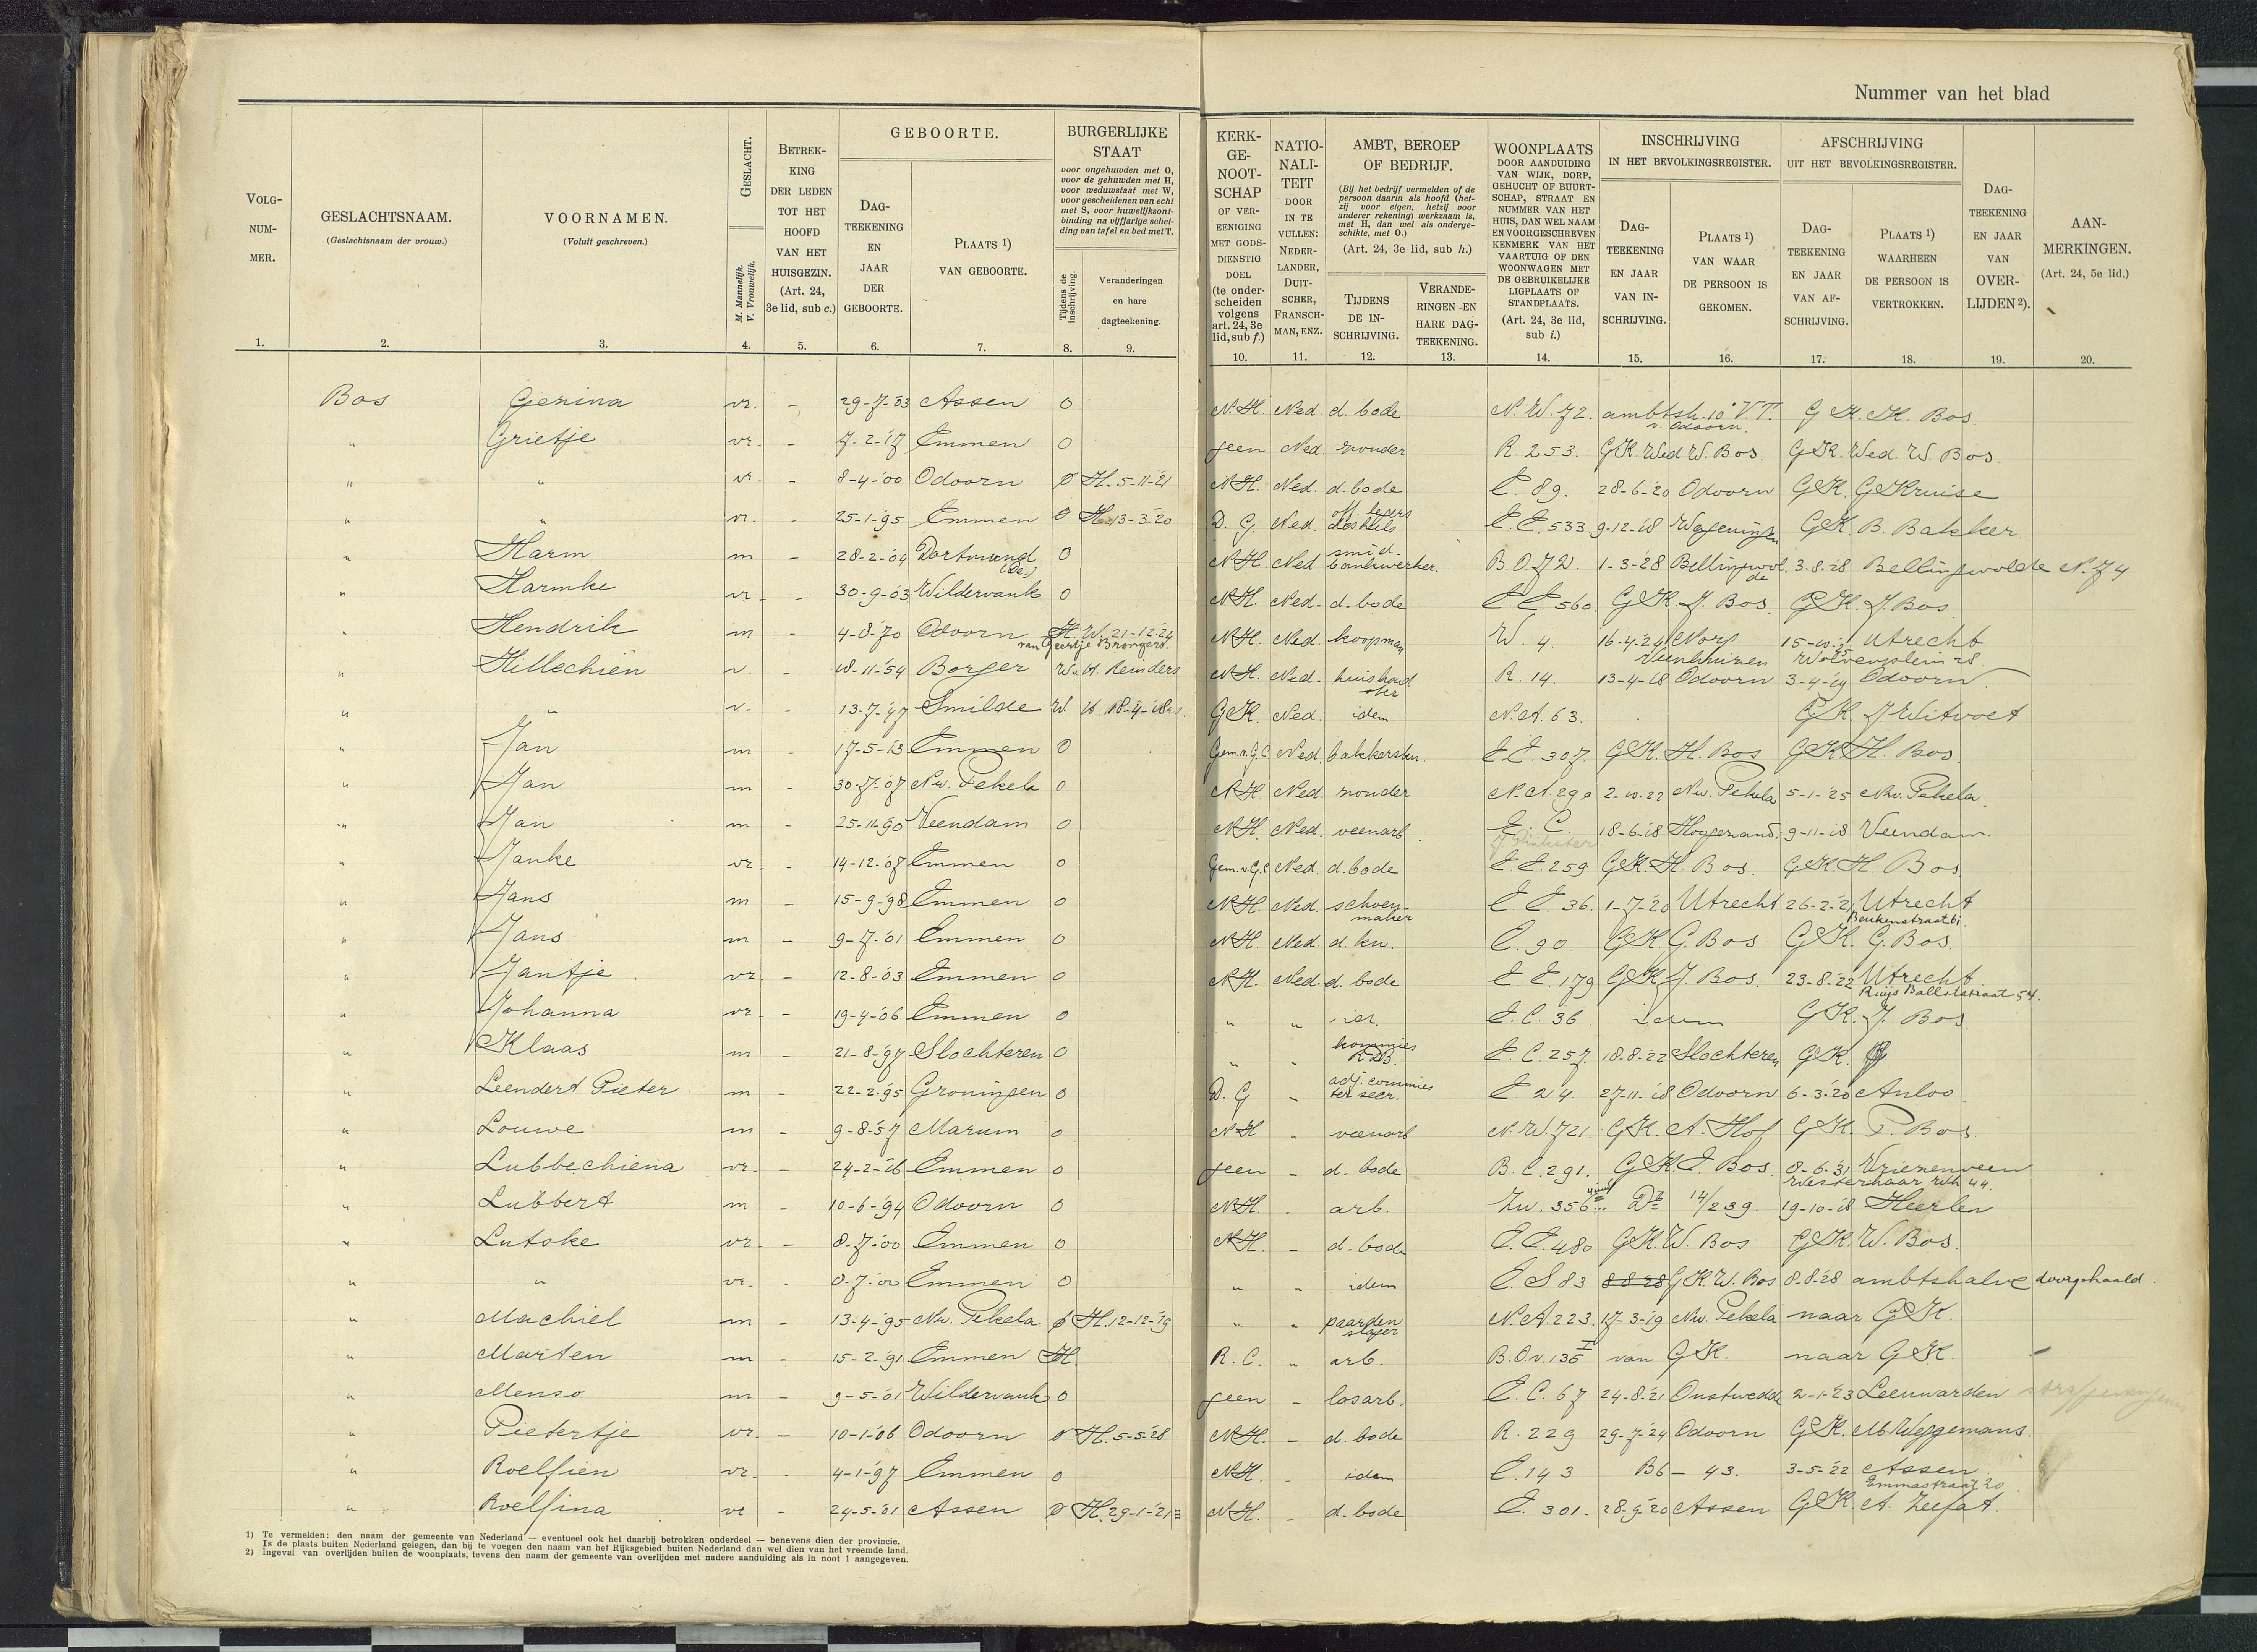 Nummer van het blad
VOLG-NUM-MER. GESLACHTSNAAM. (Geslachtsnaam der vrouw.) VOORNAMEN. (Voluit geschreven.) GESLACHT. M. Mannelijk. V. Vrouwelijk. BETREK-KING DER LEDEN TOT HET HOOFD VAN HET HUISGEZIN. (Art. 24, 3e lid, sub c.)
GEBOORTE. DAG-TEEKENING EN JAAR DER GEBOORTE. PLAATS 1) VAN GEBOORTE.
BURGERLIJKE STAAT voor ongehuwden met O, voor de gehuwden met H, voor weduwstaat met W, voor gescheidenen van echt met S, voor huwelijksont-binding na vijfjarige schei-ding van tafel en bed met T. Tijdens de inschrijving. Veranderingen en hare dagteekening.
KERK-GE-NOOT-SCHAP OF VER-EENIGING MET GODS-DIENSTIG DOEL (te onder-scheiden volgens art. 24, 3e lid, sub f.)
NATIO-NALI-TEIT DOOR IN TE VULLEN: NEDER-LANDER, DUIT-SCHER, FRANSCH-MAN, ENZ.
AMBT, BEROEP OF BEDRIJF. (Bij het bedrijf vermelden of de persoon daarin als hoofd (het-zij voor eigen, hetzij voor anderer rekening) werkzaam is, met H, dan wel als onderge-schikte, met O.) (Art. 24, 3e lid, sub h.) TIJDENS DE IN-SCHRIJVING. VERANDE-RINGEN EN HARE DAG-TEEKENING.
WOONPLAATS DOOR AANDUIDING VAN WIJK, DORP, GEHUCHT OF BUURT-SCHAP, STRAAT EN NUMMER VAN HET HUIS, DAN WEL NAAM EN VOORGESCHREVEN KENMERK VAN HET VAARTUIG OF DEN WOONWAGEN MET DE GEBRUIKELIJKE LIGPLAATS OF STANDPLAATS. (Art. 24, 3e lid, sub i.)
INSCHRIJVING IN HET BEVOLKINGSREGISTER. DAG-TEEKENING EN JAAR VAN IN-SCHRIJVING. PLAATS 1) VAN WAAR DE PERSOON IS GEKOMEN.
AFSCHRIJVING UIT HET BEVOLKINGSREGISTER. DAG-TEEKENING EN JAAR VAN AF-SCHRIJVING. PLAATS 1) WAARHEEN DE PERSOON IS VERTROKKEN.
DAG-TEEKENING EN JAAR VAN OVER-LIJDEN 2). AAN-MERKINGEN. (Art. 24, 5e lid.)
1. 2. 3. 4. 5. 6. 7. 8. 9. 10. 11. 12. 13. 14. 15. 16. 17. 18. 19. 20.
Bos Gezina vr. - 29-7-'03 Assen O N.H. Ned. d. bode N.W. 72. ambtsh. 10° V.T. v. Odoorn. G.K. K. Bos.
" Grietje vr. - 7-2-'17 Emmen O geen Ned. zonder R. 253. GK. Wed W. Bos. GK. Wed. W. Bos.
" " vr. - 8-4-'00 Odoorn O H. 5-11-'21 N.H. Ned. d. bode E. 89. 28-6-'20 Odoorn GK. G Kruise
" " vr. - 25-1-'95 Emmen O H 13-3-'20 D.G. Ned. off. legers des heils E E. 533 9-12-'18 Wageningen GK. B. Bakker
" Harm m - 28-2-'04 Dortmund (De) O N.H. Ned smid-bankwerker. B.O. 72. 1-3-'28 Bellingwolde 3-8-'28 Bellingwolde N. 74
" Harmke vr. - 30-9-'03 Wildervank O N.H. Ned. d. bode E E. 560. GK J. Bos. GK. J. Bos
" Hendrik m - 4-8-'70 Odoorn H. W. 21-12-'24 van Geertje Brongers. N.H. Ned. koopman W. 4. 16-4-'24 Norg Veenhuizen 15-10-'25 Utrecht Wolvenplein 28.
" Hillechien v. - 18-11-'54 Borger W. v. H. Reinders N.H. Ned. huishoudster R. 14. 13-4-'18 Odoorn 3-4-'19 Odoorn
" " v. - 13-7-'47 Smilde W G.K. Ned. idem N.A. 63. GK. J Witvoet
" Jan m - 17-5-'13 Emmen O Gem. v. G.C Ned. bakkerskn. E E. 307. GK. H. Bos GK H. Bos.
" Jan m - 30-7-'07 Nw. Pekela O N.H. Ned. zonder N.A. 290 2-10-22 Nw. Pekela 5-1-'25 Nw. Pekela.
" Jan m - 25-11-'90 Veendam O N.H. Ned. veenarb. E. C. 18-6-'18 Hoogezand. 9-11-'18 Veendam.
" Janke vr. - 14-12-'08 Emmen O Gem. v. G.C Ned. d. bode E E. 259 GK. H. Bos. GK H. Bos.
" Jans m - 15-9-'98 Emmen O N.H. Ned. schoenmaker E E. 36. 1-7-'20 Utrecht 26-2-'21 Utrecht Beukenstraat 61.
" Jans m - 9-7-'01 Emmen O N.H. Ned. d. kn. E. 90 GK. G. Bos GK. G. Bos.
" Jantje vr. - 12-8-'03 Emmen O N.H. Ned. d. bode E E. 179 GK J. Bos. 23-8-'22 Utrecht Ruijs Ballotstraat 54.
" Johanna vr. - 19-4-'06 Emmen O " " id. E.C. 36 idem GK. J. Bos
" Klaas m - 21-8-'97 Slochteren O " " kommies R.D.B. E.C. 257. 18-8-'22 Slochteren GK.
" Leendert Pieter m - 22-2-'95 Groningen O D.G " adj. commies ter secr. E. 24. 27-11-'18 Odoorn 6-3-'20 Anloo
" Louwe m - 9-8-'57 Marum O N.H " veenarb N.W. 721. GK. A. Hof GK. P. Bos.
" Lubbechiena vr. - 24-2-'16 Emmen O geen - d. bode B.C. 291. GK J. Bos. 8-6-'31 Vriezenveen Westerhaar Wh 44.
" Lubbert m - 10-6-'94 Odoorn O N.H. - arb. Zw. 356 14/239. 19-10-'18 Heerlen
" Lutske vr. - 8-7-'00 Emmen O N.H. - d. bode E.E. 480 GK. W. Bos GK. W. Bos.
" " vr. - 8-7-'00 Emmen O " " idem E.S 83 8-8-28 GK. W. Bos 8-8-'28 ambtshalve doorgehaald.
" Machiel m - 13-4-'95 Nw. Pekela O H. 12-12-'19 " " paardenslager N.A. 223. 17-3-'19 Nw. Pekela naar GK.
" Marten m - 15-2-'91 Emmen H. R.C. " arb. B.O.v. 135 I van GK. naar GK.
" Menso m - 9-5-'01 Wildervank O geen - losarb. E.C. 67 24-8-'21 Onstwedde 2-1-'23 Leeuwarden
" Pietertje vr. - 10-1-'06 Odoorn O H. 5-5-'28 N.H. - d. bode R. 229 29-7-'24 Odoorn GK. M Weggemans.
" Roelfien vr. - 4-1-'97 Emmen O N.H. - idem E. 143 B6 - 43. 3-5-'22 Assen Emmastraat 20.
" Roelfina vr - 24-5-'01 Assen O H. 29-1-'21 N.H. - d. bode E. 301. 28-9-'20 Assen GK. A. Zeefat.
1) Te vermelden: den naam der gemeente van Nederland — eventueel ook het daarbij betrokken onderdeel — benevens dien der provincie.
Is de plaats buiten Nederland gelegen, dan bij te voegen den naam van het Rijksgebied buiten Nederland dan wel dien van het vreemde land.
2) Ingeval van overlijden buiten de woonplaats, tevens den naam der gemeente van overlijden met nadere aanduiding als in noot 1 aangegeven.